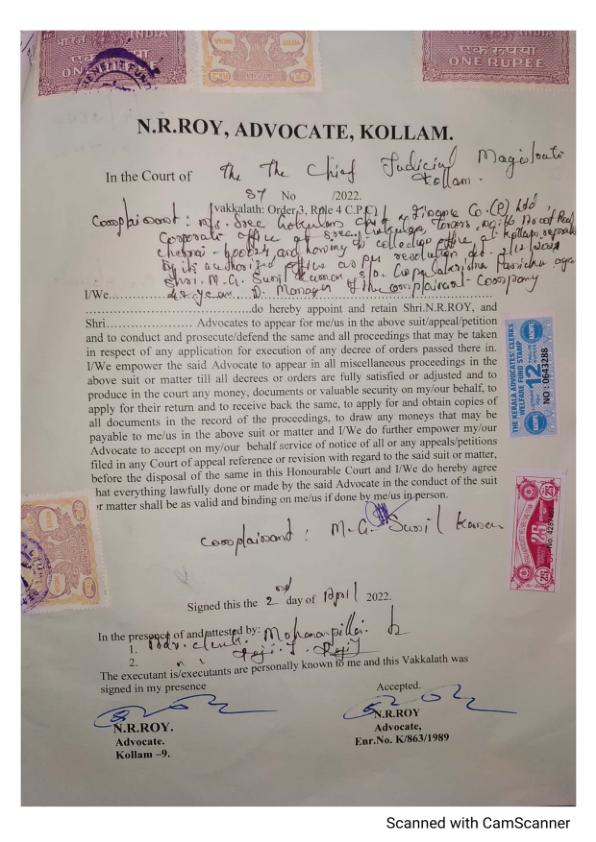 भारत INDIA
एक रुपया
ONE RUPEE
INDIA
एक रुपया
ONE RUPEE
N.R.ROY, ADVOCATE, KOLLAM.
In the Court of The The Chief Judicial Magistrate
Kollam.
ST No /2022.
(vakkalath: Order 3, Role 4 C.P.C)
Complainant : M/s. Sree Gokulam Chit & Finance Co.(P) Ltd,
Corporate office at Sree Gokulam Towers, No:
Chennai - and having its collection office at Kollam,
By its authorized officer as per resolution dt.
Shri. M.G. Sunil Kumar S/o. Gopalakrishna Panicker age
I/We 42 years D. Manager of the complainant Company
do hereby appoint and retain Shri.N.R.ROY, and
Shri..................... Advocates to appear for me/us in the above suit/appeal/petition
and to conduct and prosecute/defend the same and all proceedings that may be taken
in respect of any application for execution of any decree of orders passed there in.
I/We empower the said Advocate to appear in all miscellaneous proceedings in the
above suit or matter till all decrees or orders are fully satisfied or adjusted and to
produce in the court any money, documents or valuable security on my/our behalf, to
apply for their return and to receive back the same, to apply for and obtain copies of
all documents in the record of the proceedings, to draw any moneys that may be
payable to me/us in the above suit or matter and I/We do further empower my/our
Advocate to accept on my/our behalf service of notice of all or any appeals/petitions
filed in any Court of appeal reference or revision with regard to the said suit or matter,
before the disposal of the same in this Honourable Court and I/We do hereby agree
that everything lawfully done or made by the said Advocate in the conduct of the suit
or matter shall be as valid and binding on me/us if done by me/us in person.
THE KERALA ADVOCATES' CLERKS
WELFARE FUND STAMP
12
NO : 0643288
25
Complainant : M.G. Sunil Kumar
Signed this the 2nd day of April 2022.
In the presence of and attested by:
1. Adv. clerk Mohanan Pillai
2. " Reji
The executant is/executants are personally known to me and this Vakkalath was
signed in my presence
Accepted.
N.R.ROY.
Advocate.
Kollam –9.
N.R.ROY
Advocate,
Enr.No. K/863/1989
Scanned with CamScanner